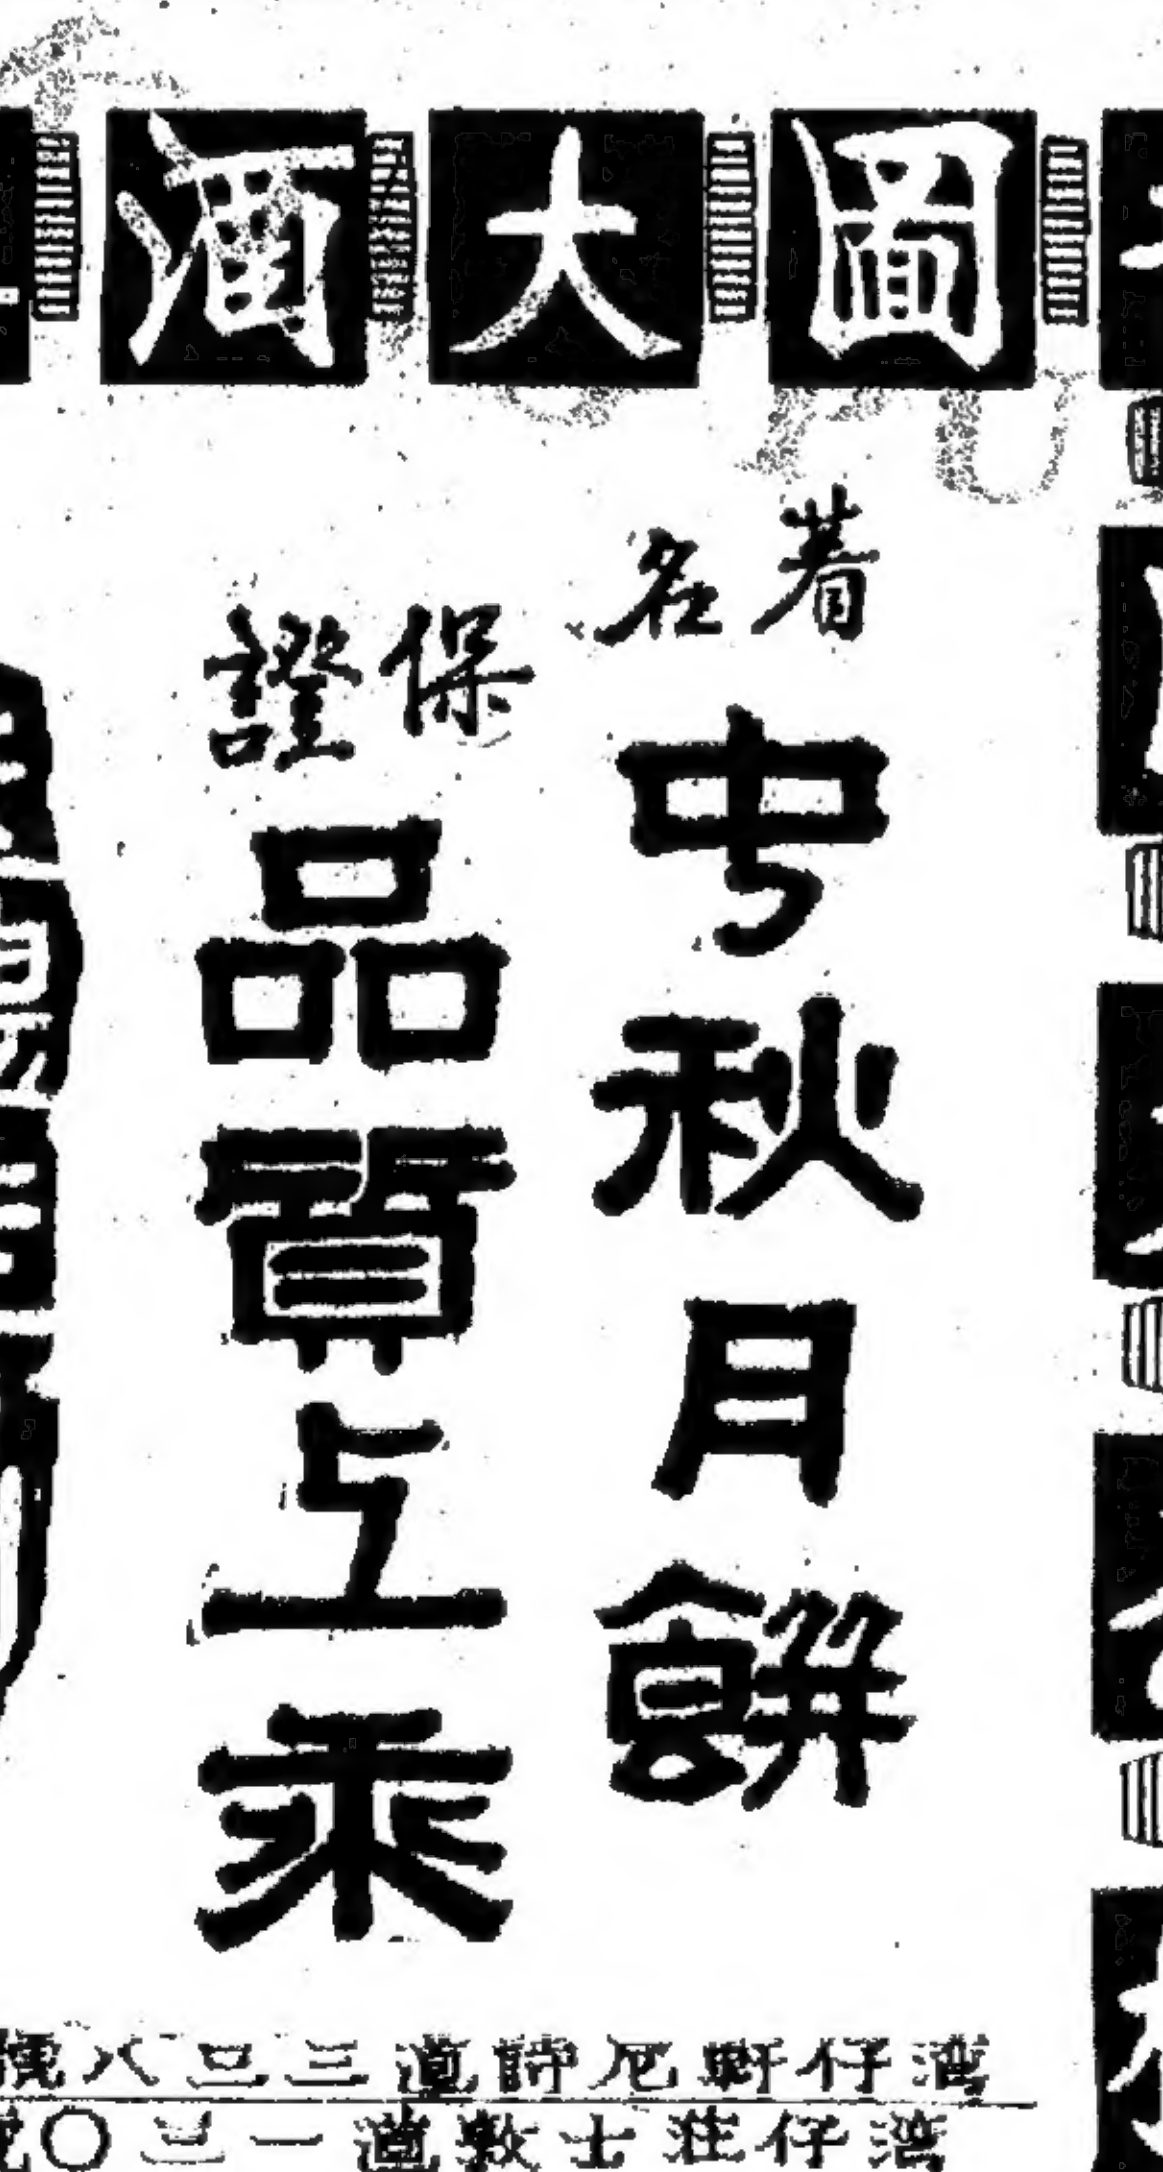 圖大酒
著名
中秋月餅
保證
品質上乘
灣仔軒尼詩道三三八號
灣仔莊士敦道一三〇號